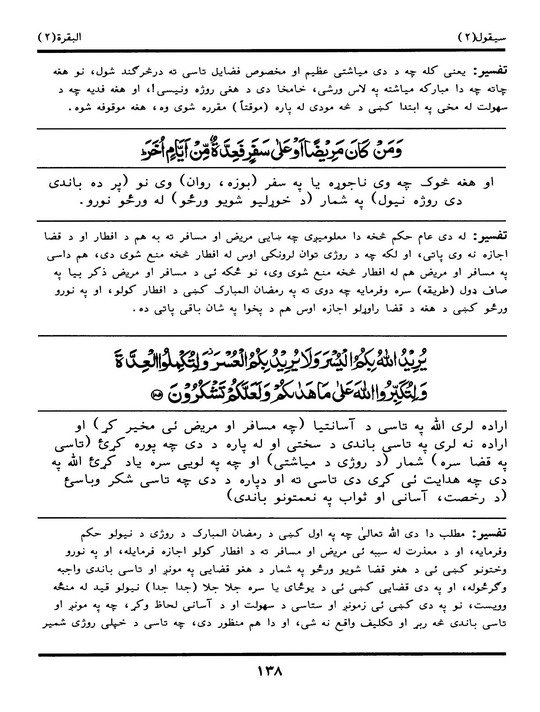 سيقول(٢)
البقرة(٢)
تفسير: يعنی کله چه د دی مياشتی عظيم او مخصوص فضايل تاسی ته درڅرګند شول، نو هغه
چاته چه دا مبارکه مياشته په لاس ورشی، خامخا دی د هغی روژه ونيسی!، او هغه فديه چه د
سهولت له مخی په ابتدا کښی د څه مودی له پاره (موقتاً) مقرره شوی وه، هغه موقوفه شوه.
وَمَنْ كَانَ مَرِيْضًا اَوْ عَلٰى سَفَرٍ فَعِدَّةٌ مِّنْ اَيَّامٍ اُخَرَ
او هغه څوک چه وی ناجوړه يا په سفر (بوزه، روان) وی نو (پر ده باندی
دی روژه نيول) په شمار (د خوړليو شويو ورځو) له ورځو نورو.
تفسير: له دی عام حکم څخه دا معلوميږی چه ښايی مريض او مسافر ته به هم د افطار او د قضا
اجازه نه وی پاتی، او لکه چه د روژی توان لرونکی اوس له افطار څخه منع شوی دی، هم داسی
به مسافر او مريض هم له افطار څخه منع شوی وی، نو ځکه ئی د مسافر او مريض ذکر بيا په
صاف ډول (طريقه) سره وفرمايه چه دوی ته په رمضان المبارک کښی د افطار کولو، او په نورو
ورځو کښی د هغه د قضا راوړلو اجازه اوس هم د پخوا په شان باقی پاتی ده.
يُرِيْدُ اللهُ بِكُمُ الْيُسْرَ وَلَا يُرِيْدُ بِكُمُ الْعُسْرَ وَلِتُكْمِلُوا الْعِدَّةَ
وَلِتُكَبِّرُوا اللهَ عَلٰى مَا هَدٰىكُمْ وَلَعَلَّكُمْ تَشْكُرُوْنَ
اراده لری الله په تاسی د آسانتيا (چه مسافر او مريض ئی مخير کړ) او
اراده نه لری په تاسی باندی د سختی او له پاره د دی چه پوره کړئ (تاسی
په قضا سره) شمار (د روژی د مياشتی) او چه په لويی سره ياد کړئ الله په
دی چه هدايت ئی کړی دی تاسی ته او دپاره د دی چه تاسی شکر وباسئ
(د رخصت، آسانی او ثواب په نعمتونو باندی)
تفسير: مطلب دا دی الله تعالیٰ چه په اول کښی د رمضان المبارک د روژی د نيولو حکم
وفرمايه، او د معذرت له سببه ئی مريض او مسافر ته د افطار کولو اجازه فرمايله، او په نورو
وختونو کښی ئی د هغو قضا شويو ورځو په شمار د هغو قضايی په مونږ او تاسی باندی واجبه
وګرځوله، او په دی قضايی کښی ئی د يوځای يا سره جلا جلا (جدا جدا) نيولو قيد له منځه
وويست، نو په دی کښی ئی زمونږ او ستاسی د سهولت او د آسانی لحاظ وکړ، چه په مونږ او
تاسی باندی څه ربړ او تکليف واقع نه شی، او دا هم منظور دی، چه تاسی د خپلی روژی شمير
١٣٨